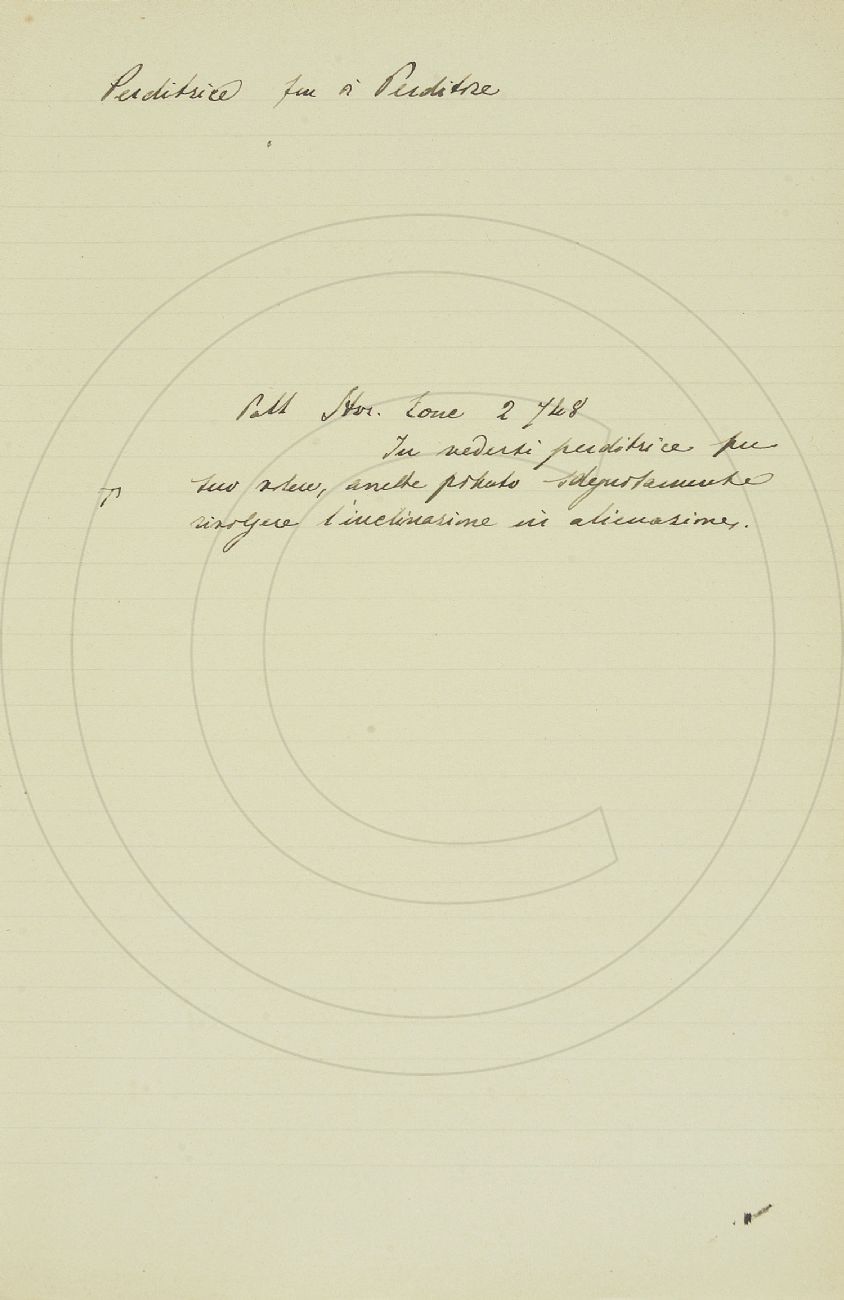 Perditrice fem di Perditore
Pall Stor. Conc 2 748
In vedersi perditrice per
suo volere, avrebbe potuto sdegnosamente
rivolgere l'inclinazione in alienazione.